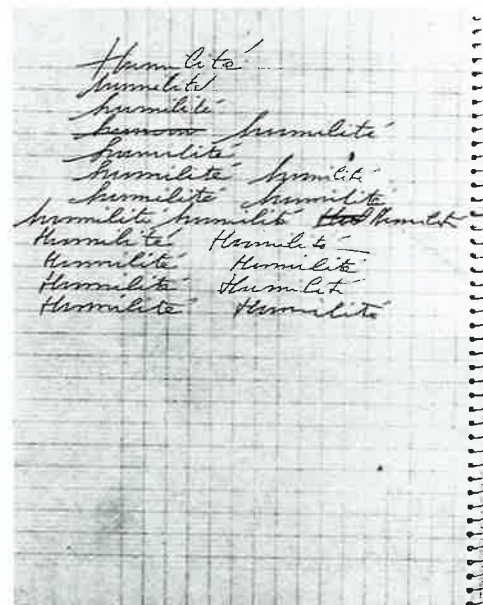 Humilité
humilité
humilité
humilité
humilité
humilité humilité
humilité humilité
humilité humilité Humilité
Humilité Humilité
Humilité Humilité
Humilité Humilité
Humilité Humilité